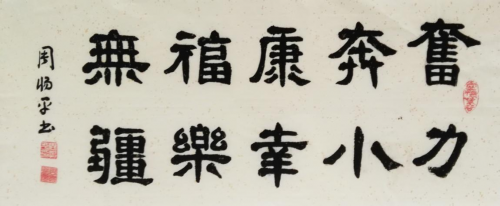 奮力
奔小
康幸
福樂
無疆
周 平书